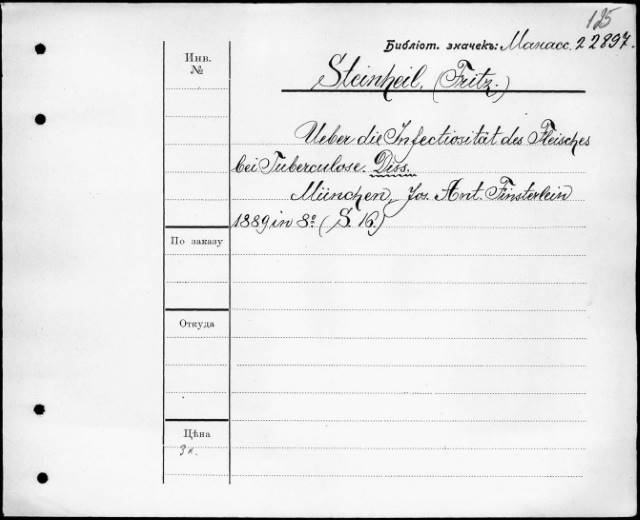 125
Библіот. значекъ: Манасс. 22897.
Инв.
№
Steinheil, (Fritz.)
Ueber die Infectiosität des Fleisches
bei Tuberculose. Diss.
München, Jos. Ant. Finsterlein
1889 in 8º (S. 16.)
По заказу
Откуда
Цѣна
3 к.